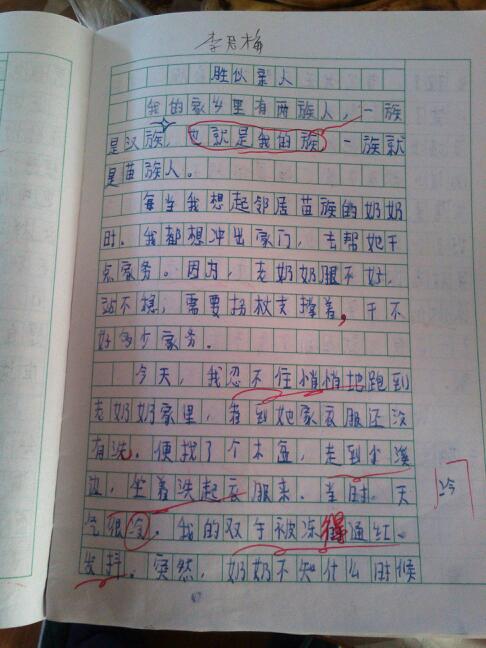 李君梅
胜似亲人
我的家乡里有两族人，一族
是汉族，也就是我的族，一族就
是苗族人。
每当我想起邻居苗族的奶奶
时，我都想冲出家门，去帮她干
点家务。因为，老奶奶腿不好，
站不稳，需要拐杖支撑着，干不
好多少家务。
今天，我忍不住悄悄地跑到
老奶奶家里，看到她家衣服还没
有洗，便找了个木盆，走到小溪
边，坐着洗起衣服来。当时，天
气很冷，我的双手被冻得通红、
发抖。突然，奶奶不知什么时候
冷